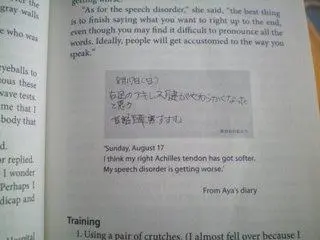 gray walls
e who was
eyeballs to
these
wave tests.
me that I
body that
replied.
I wonder
Perhaps I
and
"As for the speech disorder," she said, "the best thing
is to finish saying what you want to right up to the end,
even though you may find it difficult to pronounce all the
words. Ideally, people will get accustomed to the way you
speak."
8月17日(日)
右足のアキレス腱がやわらかくなった
と思う
言語障害すすむ
'Sunday, August 17
I think my right Achilles tendon has got softer.
My speech disorder is getting worse.'
From Aya's diary
Training
1. Using a pair of crutches. (I almost fell over because I